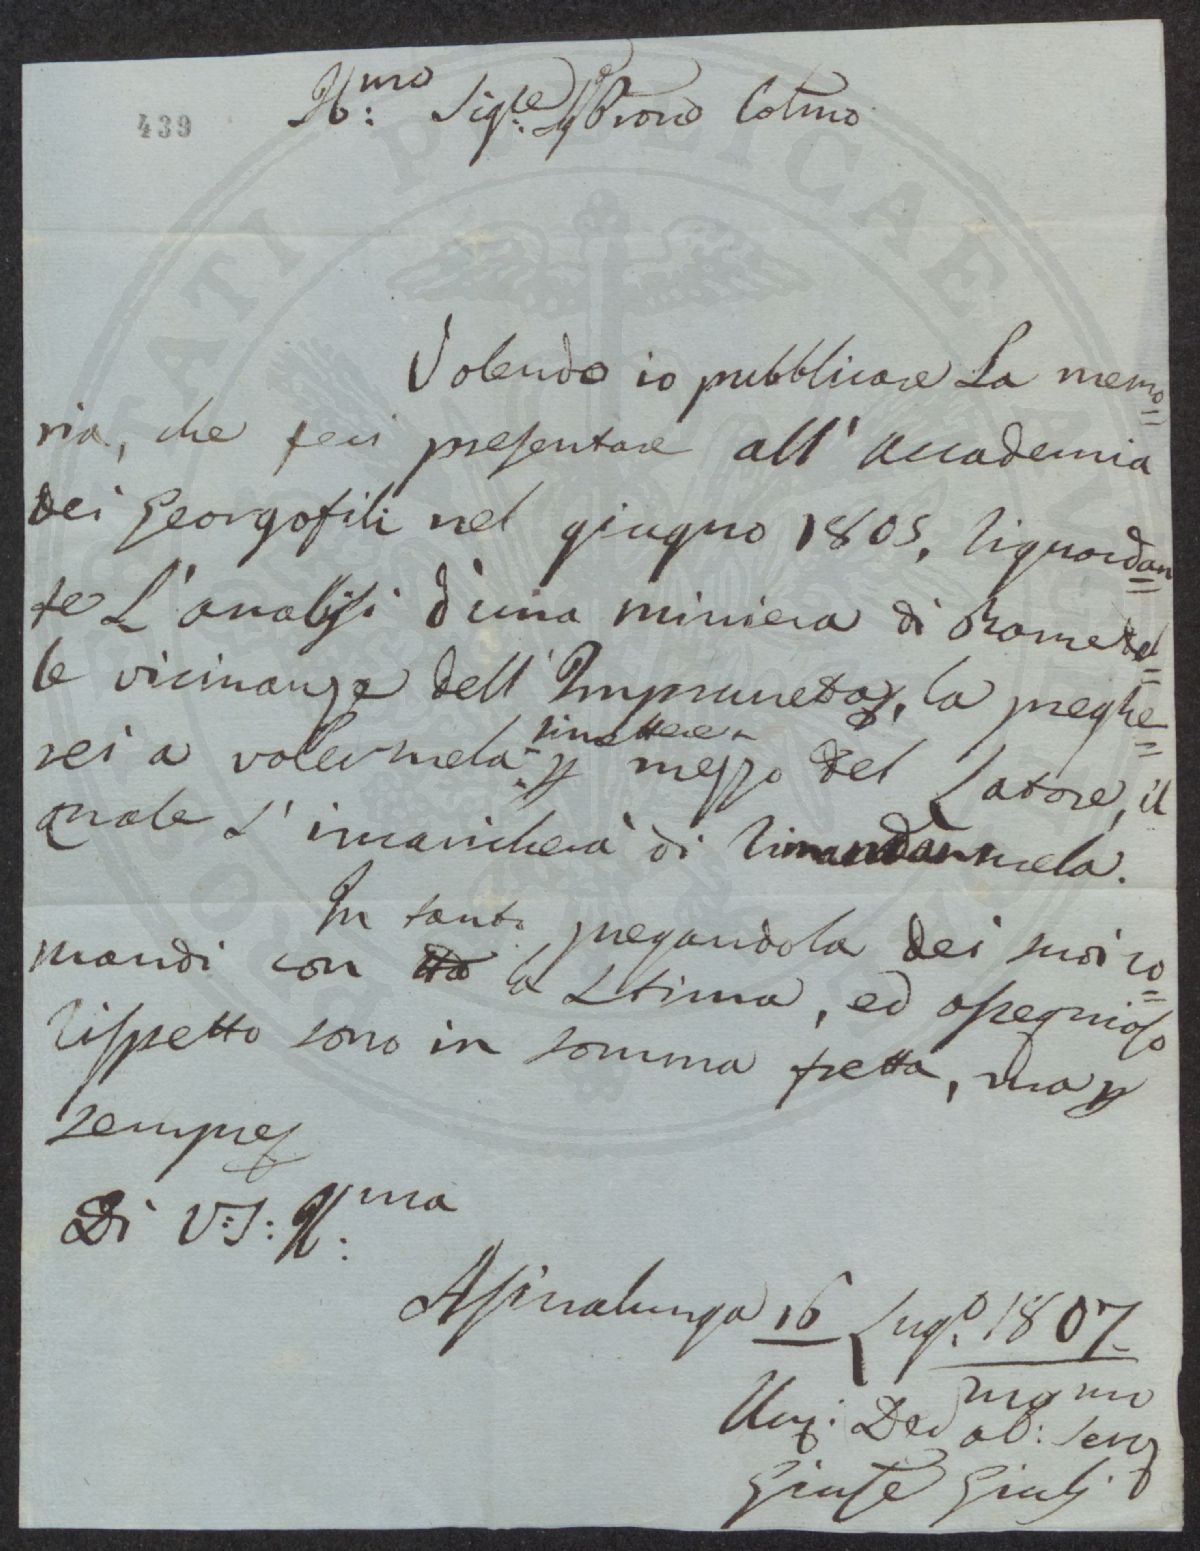 439
Ill:mo Sig:re Sig:e Prone Colmo
Volendo io pubblicare La memo=
ria, che feci presentare all'Accademia
dei Georgofili nel giugno 1805, riguardan=
te L'analisi d'una miniera di Rame del=
le vicinanze dell'Impruneta, la preghe=
rei a volermela rimettere p mezzo del Latore, il
quale L'incaricherà di rimandarmela.
In tanto pregandola dei suoi co=
mandi con la Stima, ed ossequioso
rispetto sono in somma fretta, ma p
sempre
Di V:S: Ill:ma
Asinalunga 16 Lugo: 1807
Um: Devmo ob:mo Serv
Giuse Giulj